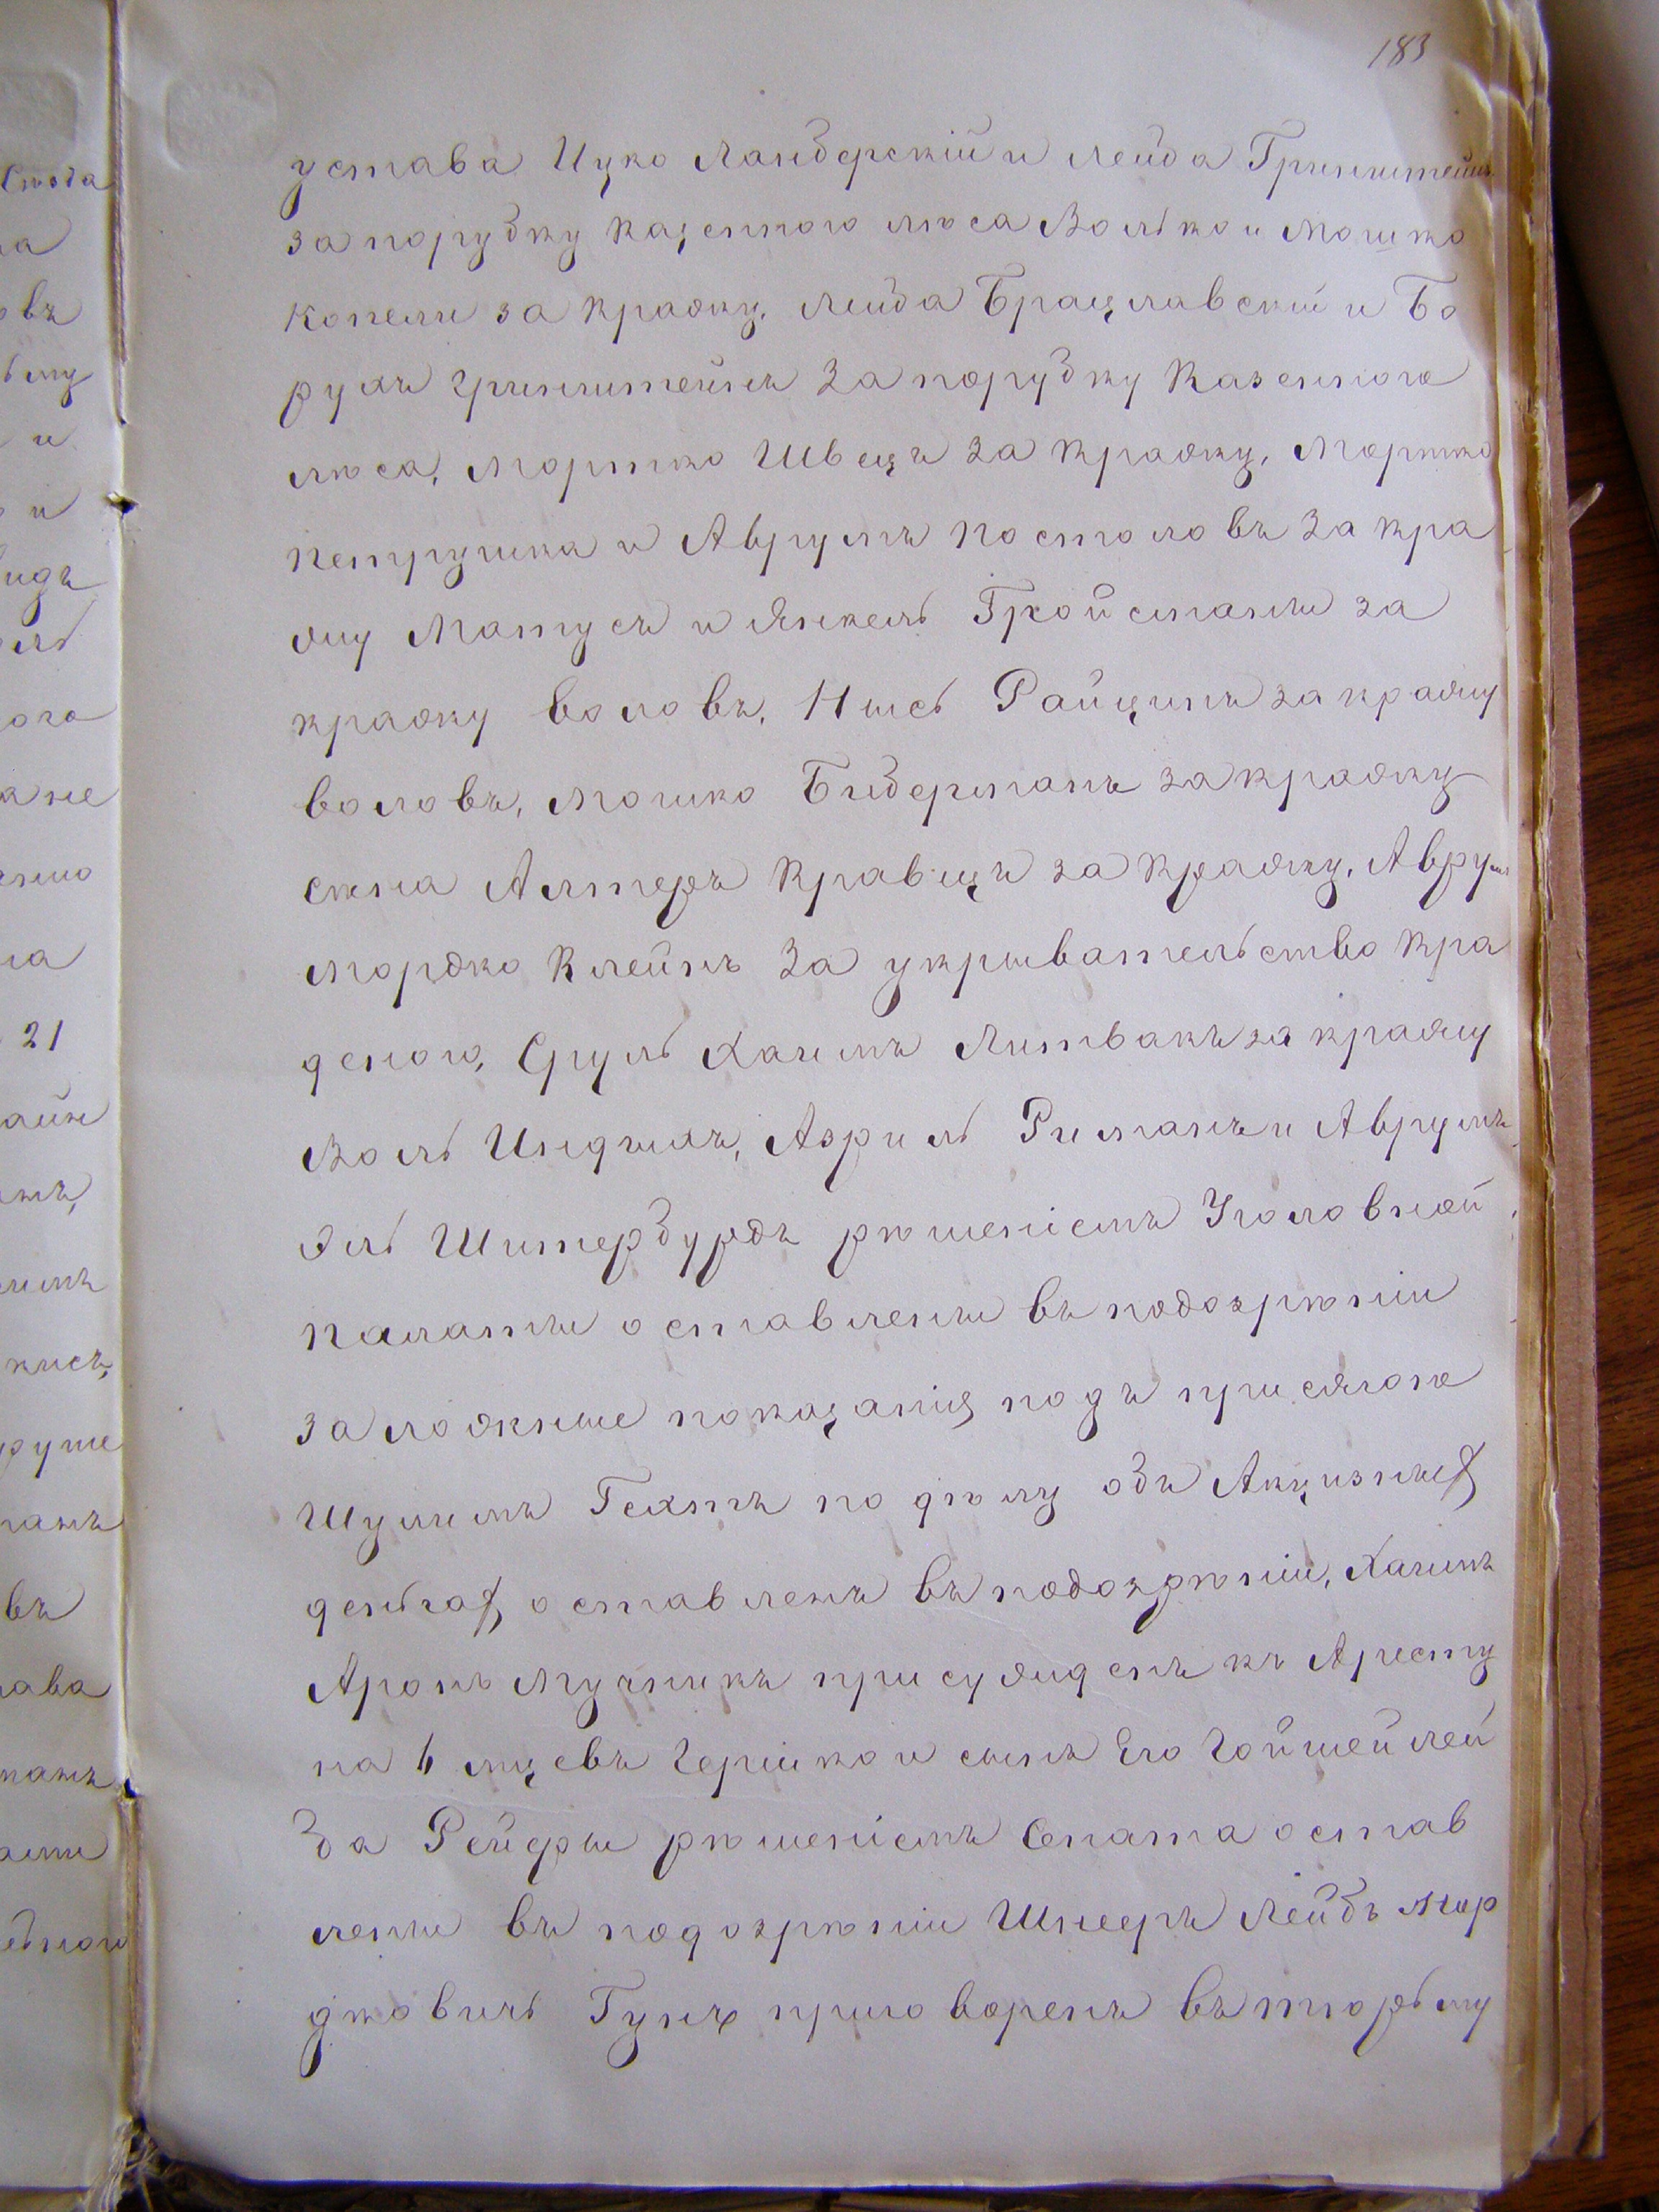 183
устава Ицко Ландберскій и Лейба Гринштейнъ
за порубку казеннаго лѣса Волько и Мошко
Копели за кражу, Лейба Брацлавскій и Бо
рухъ Гринштейнъ за порубку казенного
лѣса, Мортко Швецъ за кражу, Мортко
Петрушка и Аврумъ Постоловъ за кра
жу Матусъ и Янкель Гройсманы за
кражу воловъ, Нысь Райцинъ за кражу
воловъ, Мошко Бидерманъ за кражу
сѣна Алтеръ Кравецъ за кражу, Аврумъ
Мордко Клейнъ за укрывательство кра
деного, Сруль Хаимъ Литвакъ за кражу
Воль Индыхъ, Азриль Риманъ и Аврумъ
Эль Штербурдъ рѣшеніемъ Уголовной
Палаты оставлены въ подозрѣніи
за ложные показанія подъ присягою
Шулимъ Гехтъ по дѣлу объ Акцизныхъ
деньгахъ оставленъ въ подозрѣніи, Хаимъ
Аронъ Мучникъ присужденъ къ Аресту
на 6 мцевъ Гершко и сынъ Его Гойшей Лей
ба Рейдры рѣшеніемъ Сената остав
лены въ подозрѣніи Шнееръ Лейбъ Мор
дковичъ Гунъ приговоренъ въ тюрьму
ого
овъ
21
въ